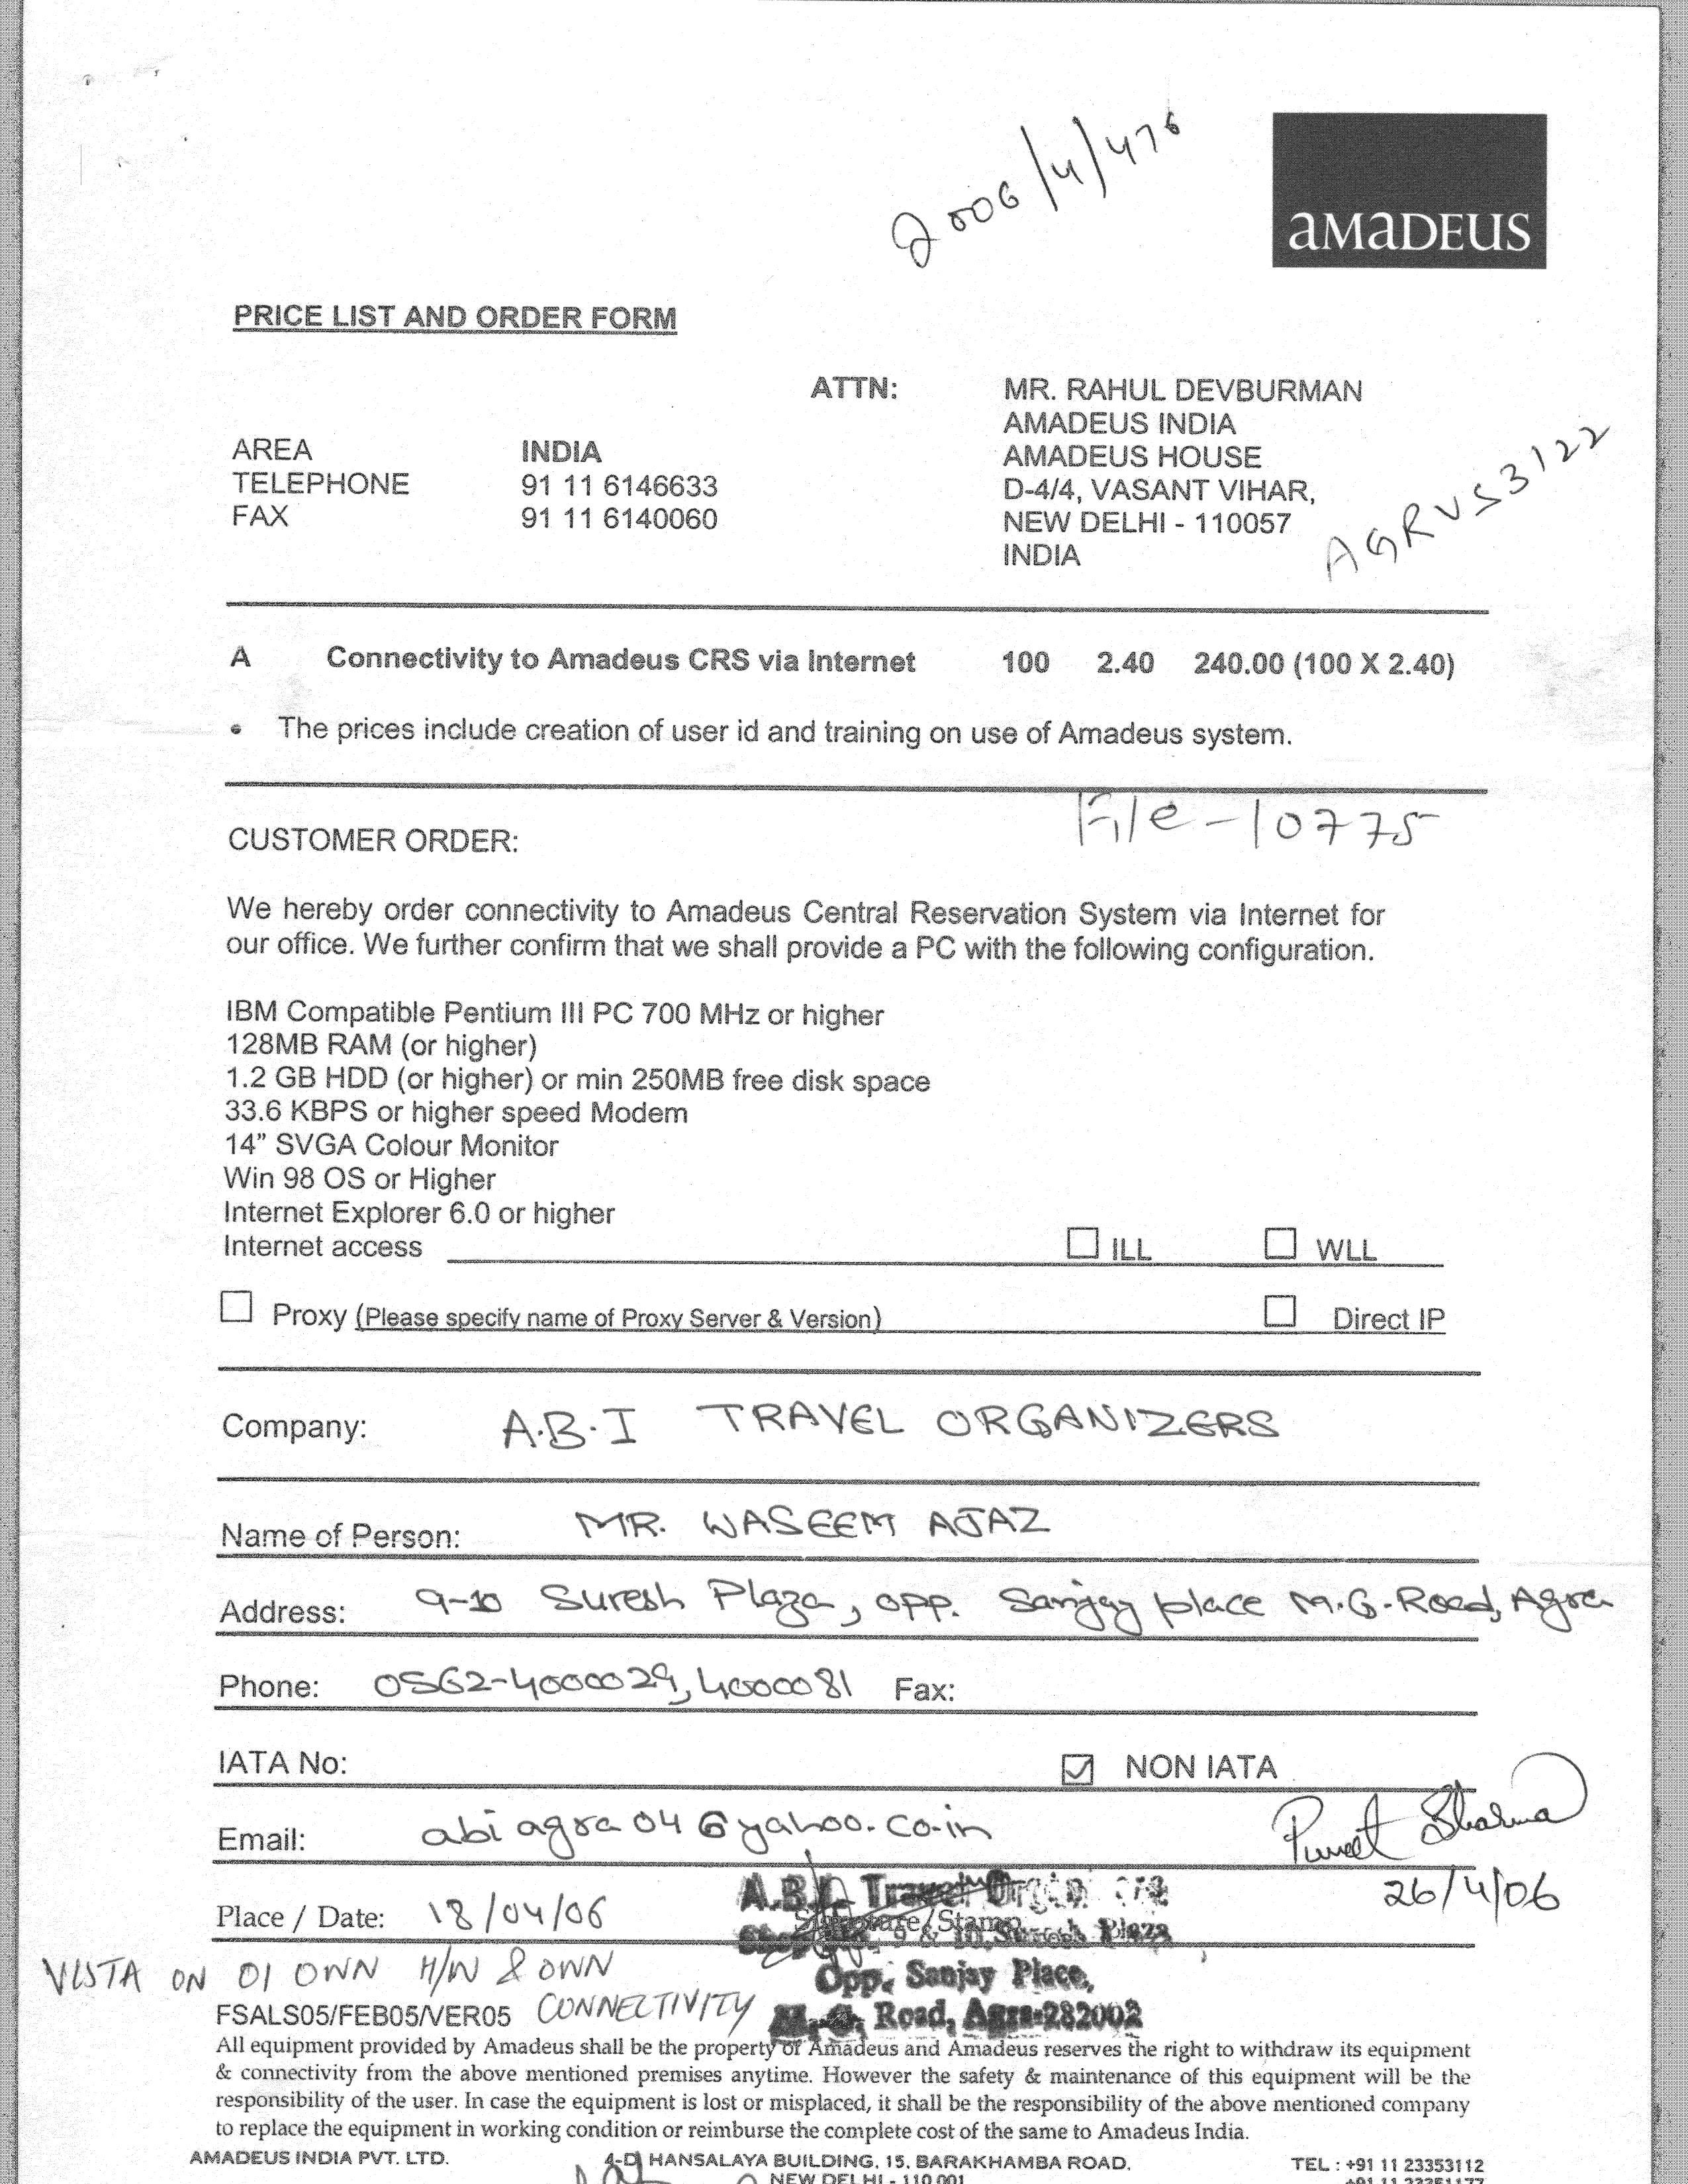 2006/4/476
amaDEUS
PRICE LIST AND ORDER FORM
ATTN: MR. RAHUL DEVBURMAN
AMADEUS INDIA
AREA INDIA AMADEUS HOUSE
TELEPHONE 91 11 6146633 D-4/4, VASANT VIHAR,
FAX 91 11 6140060 NEW DELHI - 110057
INDIA
AGRVS3122
A Connectivity to Amadeus CRS via Internet 100 2.40 240.00 (100 X 2.40)
• The prices include creation of user id and training on use of Amadeus system.
File - 10775
CUSTOMER ORDER:
We hereby order connectivity to Amadeus Central Reservation System via Internet for
our office. We further confirm that we shall provide a PC with the following configuration.
IBM Compatible Pentium III PC 700 MHz or higher
128MB RAM (or higher)
1.2 GB HDD (or higher) or min 250MB free disk space
33.6 KBPS or higher speed Modem
14” SVGA Colour Monitor
Win 98 OS or Higher
Internet Explorer 6.0 or higher
Internet access ☐ ILL ☐ WLL
☐ Proxy (Please specify name of Proxy Server & Version) ☐ Direct IP
Company: A.B.I TRAVEL ORGANIZERS
Name of Person: MR. WASEEM AJAZ
Address: 9-10 Suresh Plaza, opp. Sanjay place M.G.Road, Agra
Phone: 0562-4000029, 4000081 Fax:
IATA No: ☑ NON IATA
Email: abiagra04@yahoo.co.in
Puneet Sharma
26/4/06
Place / Date: 18/04/06 Signature/Stamp
A.B.I. Travel
9 & 10, Suresh Plaza
Opp. Sanjay Place,
M.G. Road, Agra-282002
VISTA ON 01 OWN H/W & OWN
CONNECTIVITY
FSALS05/FEB05/VER05
All equipment provided by Amadeus shall be the property of Amadeus and Amadeus reserves the right to withdraw its equipment
& connectivity from the above mentioned premises anytime. However the safety & maintenance of this equipment will be the
responsibility of the user. In case the equipment is lost or misplaced, it shall be the responsibility of the above mentioned company
to replace the equipment in working condition or reimburse the complete cost of the same to Amadeus India.
AMADEUS INDIA PVT. LTD. 4-D, HANSALAYA BUILDING, 15, BARAKHAMBA ROAD. TEL : +91 11 23353112
NEW DELHI - 110 001 +91 11 23351177